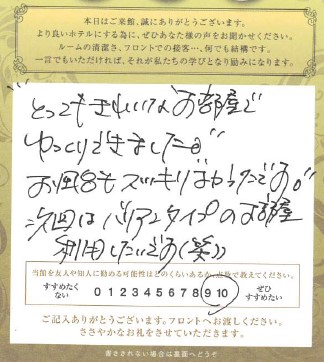 本日はご来館、誠にありがとうございます。
より良いホテルにする為に、ぜひあなた様の声をお聞かせください。
ルームの清潔さ、フロントでの接客…、何でも結構です。
一言でもいただければ、それが私たちの学びとなり励みになります。
とってもきれいなお部屋で
ゆっくりできました。
お風呂もスッキリ よかったです。
次回はバリアンタイプのお部屋
利用したいです(笑))
当館を友人や知人に勧める可能性はどのくらいあるか、点数で教えてください。
すすめたく
ない
0 1 2 3 4 5 6 7 8 9 10
ぜひ
すすめたい
ご記入ありがとうございます。フロントへお渡しください。
ささやかなお礼をさせていただきます。
潜さきれない場合は裏面へどうぞ